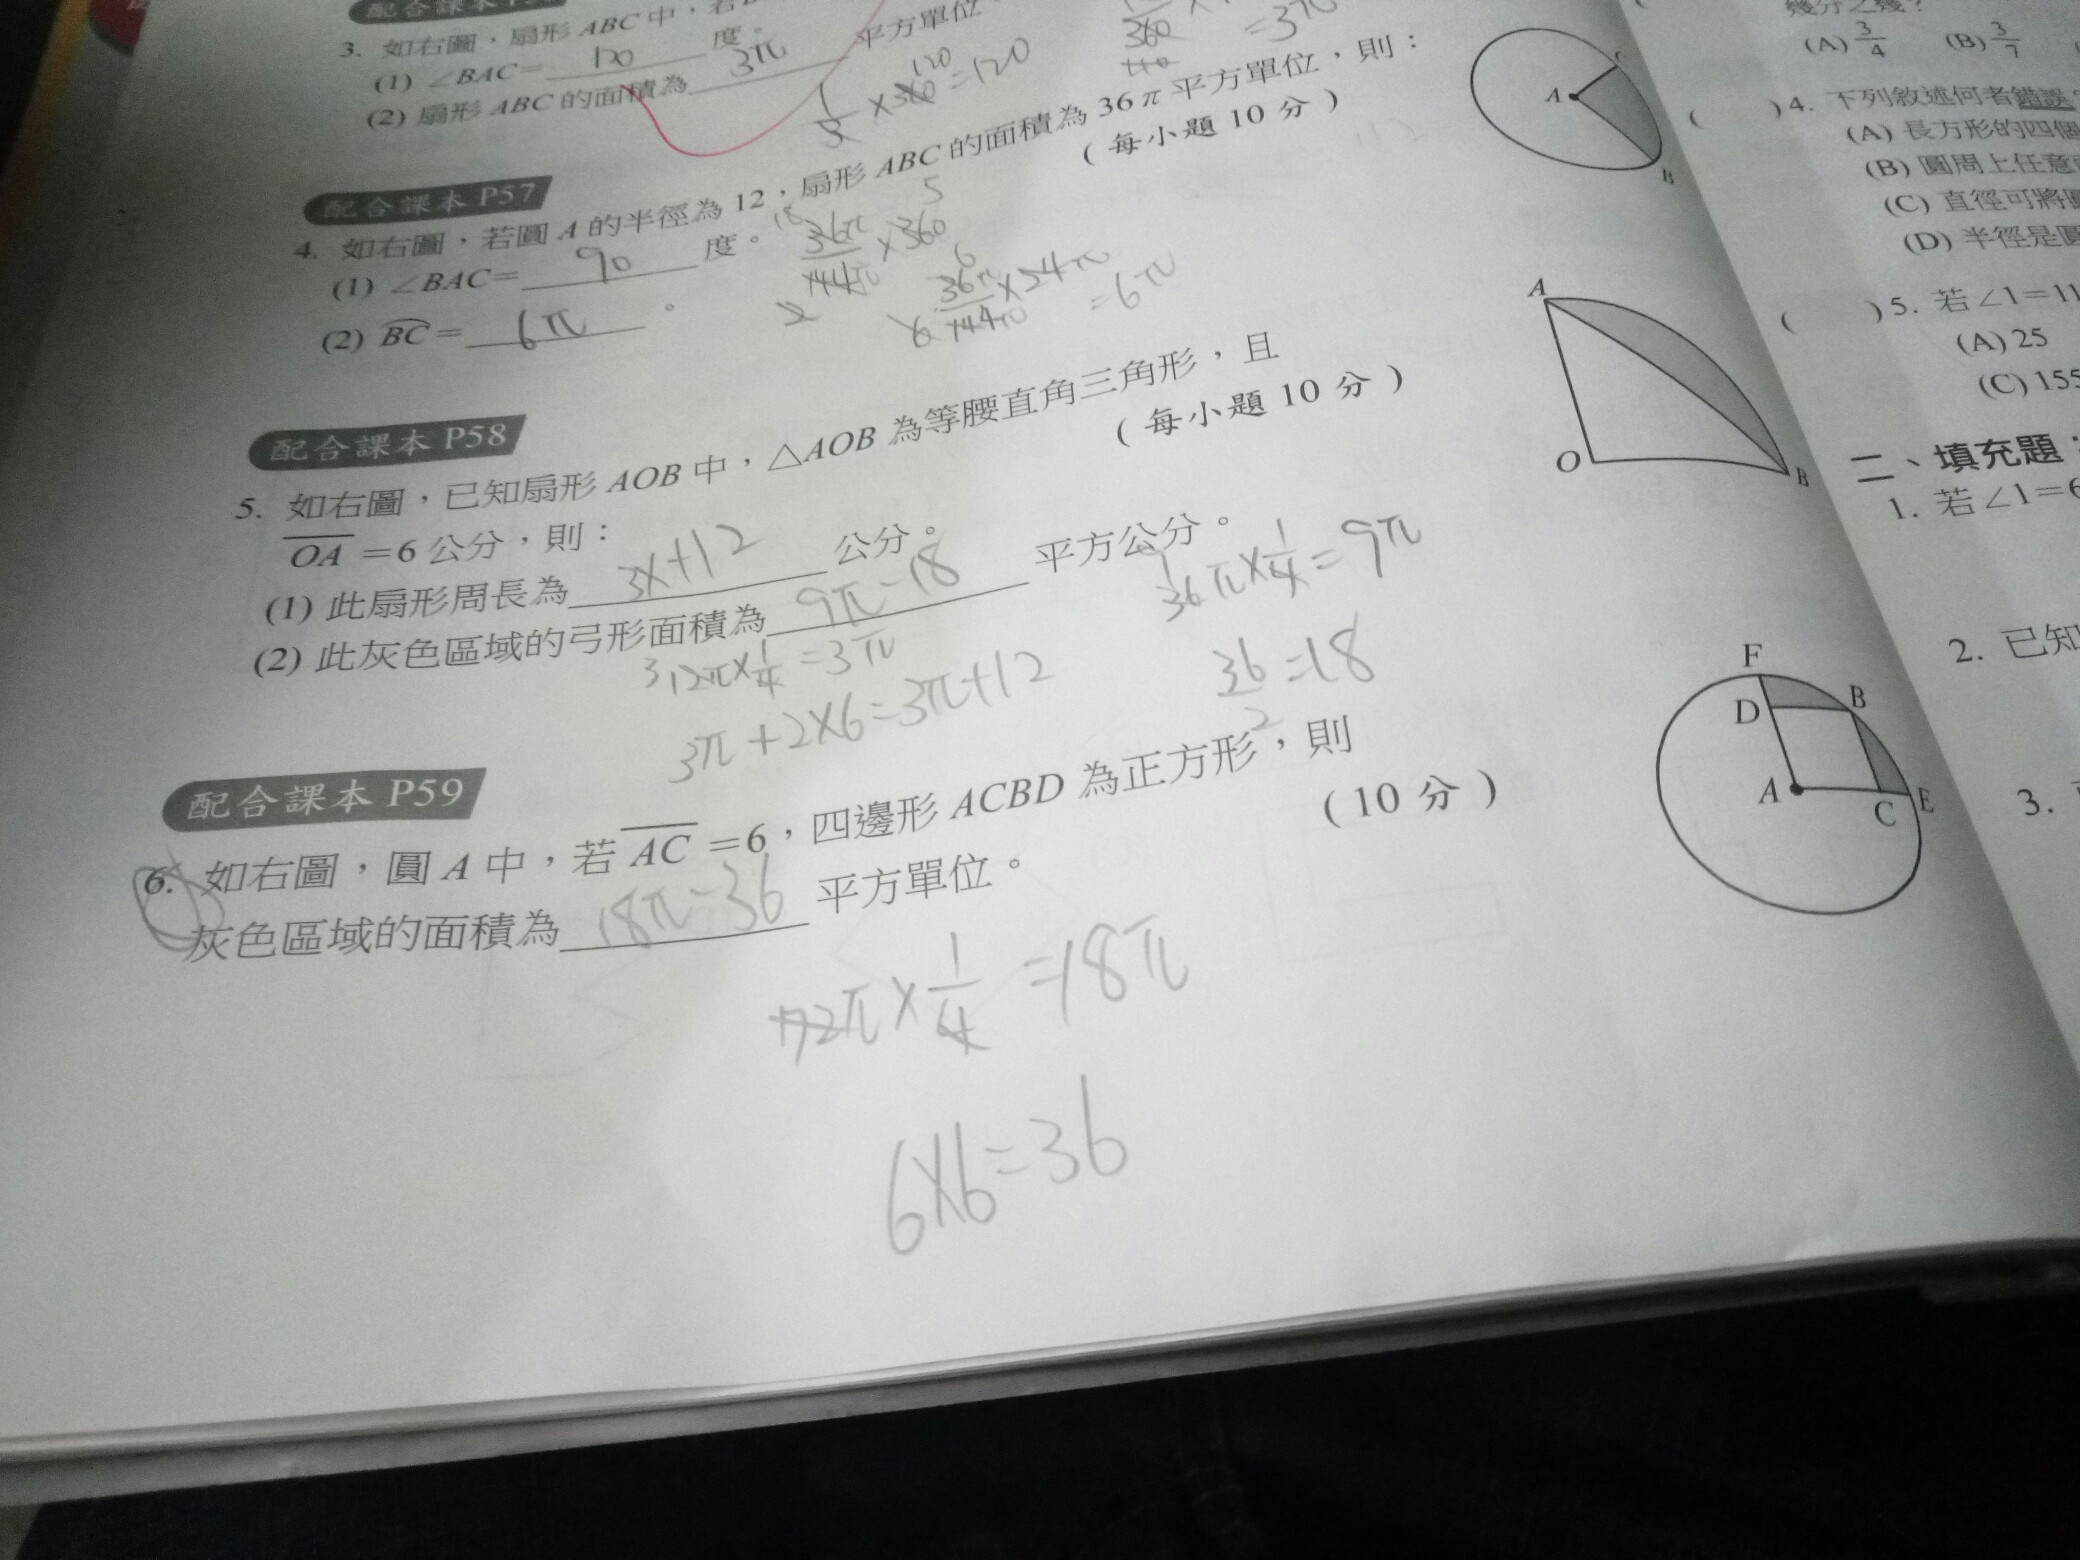 配合課本
3. 如右圖，扇形 ABC 中，若
(1) ∠BAC= 120 度。
(2) 扇形 ABC 的面積為 3π 平方單位。
1/3 ×360 120 =120
360
=3π
配合課本 P57
4. 如右圖，若圓 A 的半徑為 12，扇形 ABC 的面積為 36π 平方單位，則：
(每小題 10 分)
(1) ∠BAC= 90 度。
(2) BC= 6π 。
36π/144π ×360
36π/144π ×24π =6π
A
B
配合課本 P58
5. 如右圖，已知扇形 AOB 中，△AOB 為等腰直角三角形，且
OA=6 公分，則：
(每小題 10 分)
(1) 此扇形周長為 3π+12 公分。
(2) 此灰色區域的弓形面積為 9π-18 平方公分。
36π×1/4=9π
3 12π×1/4=3π
36/2=18
3π+2×6=3π+12
A
O
B
配合課本 P59
6. 如右圖，圓 A 中，若 AC=6，四邊形 ACBD 為正方形，則
(10 分)
灰色區域的面積為 18π-36 平方單位。
72π×1/4=18π
6×6=36
F
D
B
A
C
E
(A) 3/4 (B) 3/7
( )4. 下列敘述何者錯誤
(A) 長方形的四個
(B) 圓周上任意
(C) 直徑可將
(D) 半徑是
( )5. 若∠1=11
(A) 25
(C) 155
二、填充題：
1. 若∠1=6
2. 已知
3.